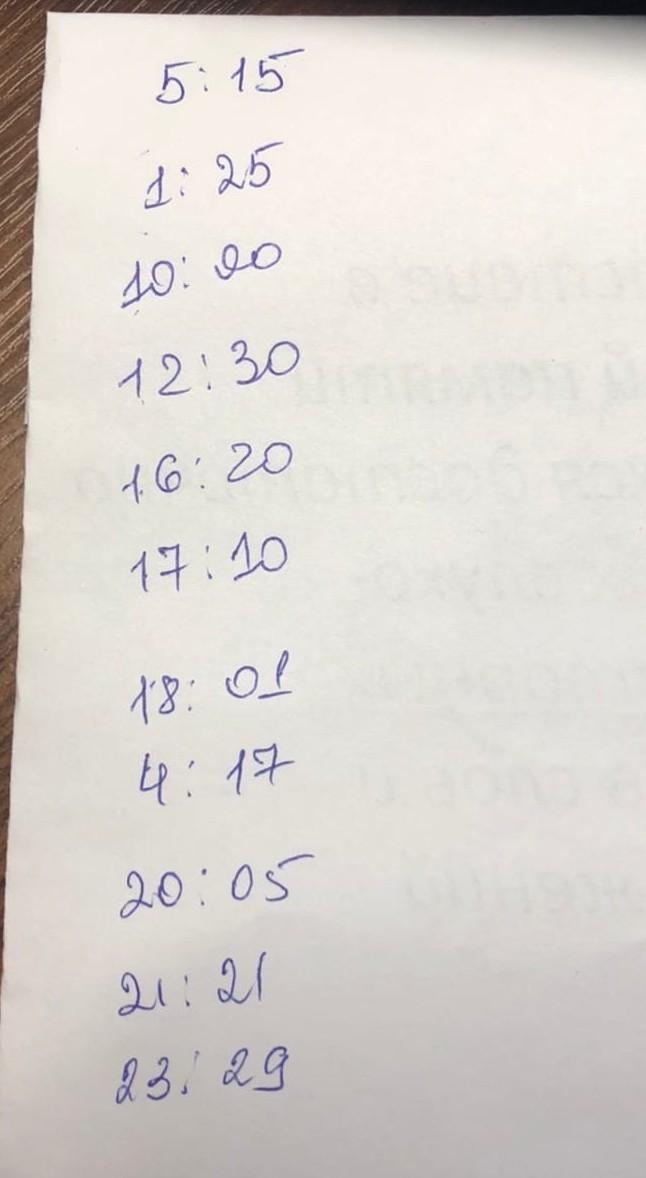 5:15
1:25
10:20
12:30
16:20
17:10
18:01
4:17
20:05
21:21
23:29